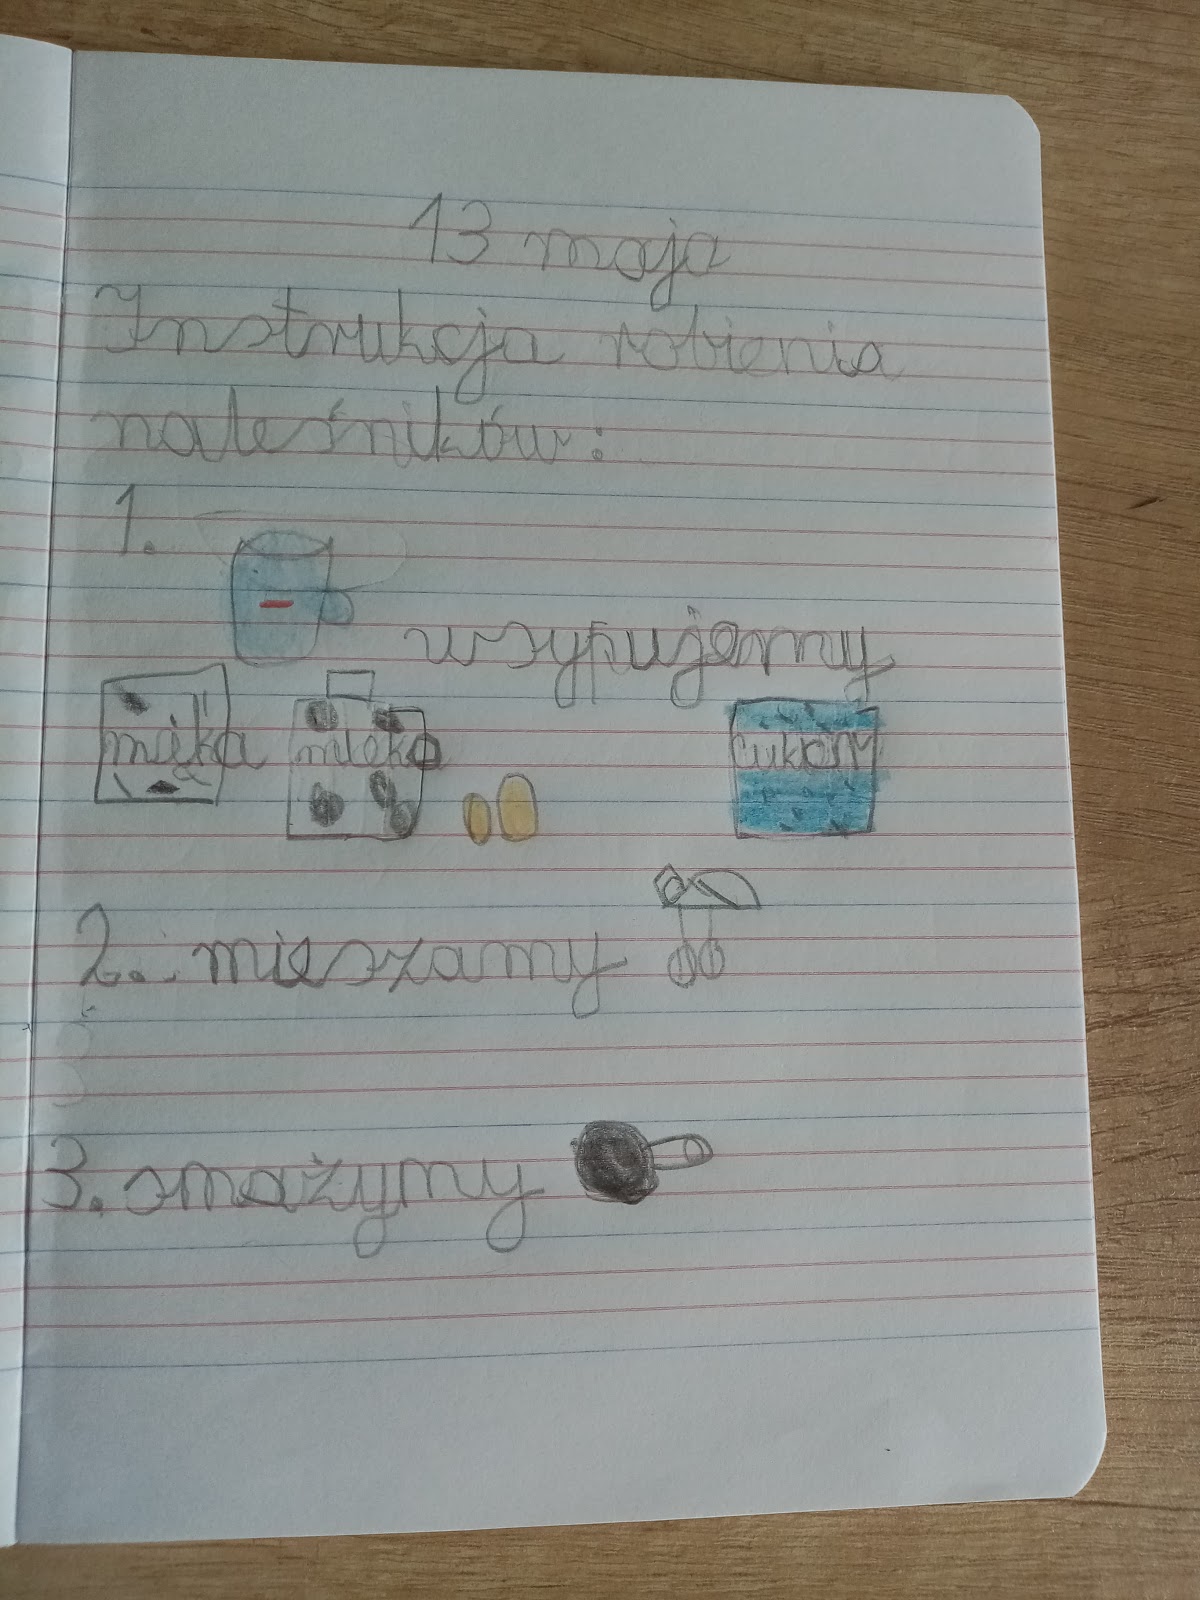 13 maja
Instrukcja robienia
naleśników:
1.
wsypujemy
mąka mleko
2. mieszamy
3. smażymy